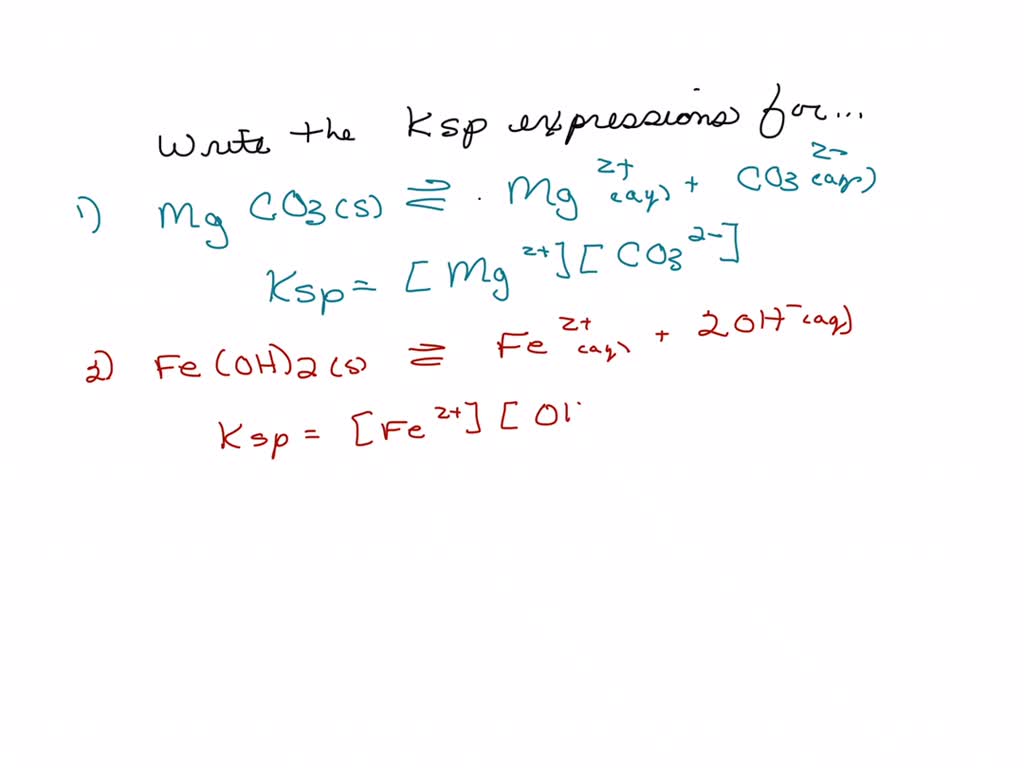 Write the Ksp expressions for...
1) MgCO3(s) ⇌ Mg²⁺(aq) + CO3²⁻(aq)
Ksp = [Mg²⁺][CO3²⁻]
2) Fe(OH)2(s) ⇌ Fe²⁺(aq) + 2OH⁻(aq)
Ksp = [Fe²⁺][